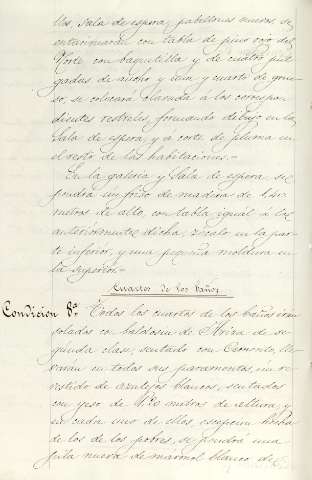 llos, Sala de espera, pabellones nuevos, se
entarimarán con tabla de pino rojo del
Norte con baquetilla y de cuatro pul-
gadas de ancho y una y cuarto de grue-
so, se colocará clavada á los correspon-
dientes rastreles, formando dibujo en la
Sala de espera, y á corte de pluma en
el resto de las habitaciones.=
En la galeria y Sala de espera, se
pondrá un friso de madera de 1,40
metros de alto, con tabla igual á la
anteriormente dicha, zócalo en la par-
te inferior, y una pequeña moldura en
la superior.=
Cuartos de los baños
Condicion 8ª Todos los cuartos de los baños irán
solados con baldosin de Ariza de se-
gunda clase, sentado con Cemento, lle-
varán en todos sus paramentos, un re-
vestido de azulejos blancos, sentados
con yeso de metros de altura, y
en cada uno de ellos, excepcion hecha
de los de los pobres, se pondrá una
pila nueva de mármol blanco de